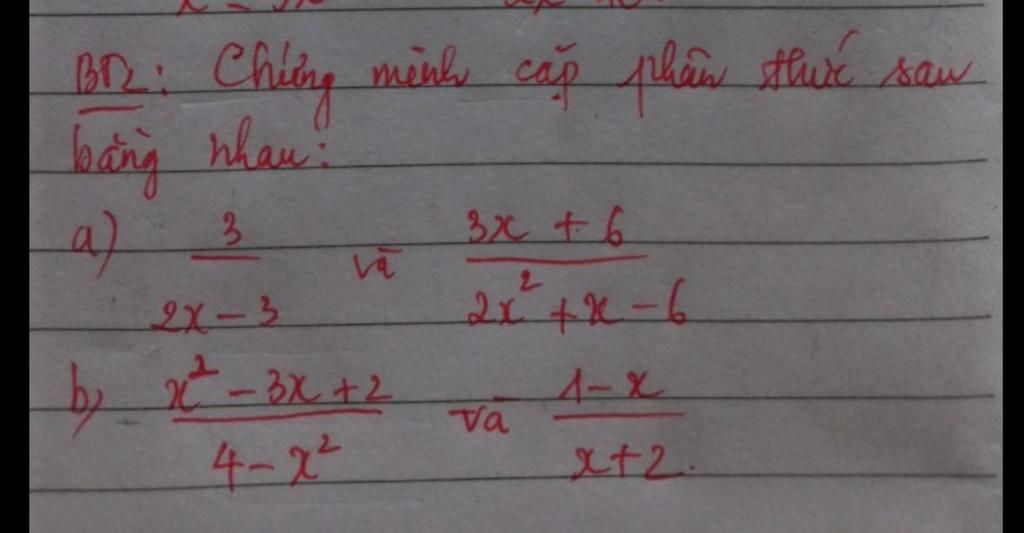 BT2: Chứng minh cặp phân thức sau
bằng nhau:
a) 3/(2x - 3) và (3x + 6)/(2x² + x - 6)
b) (x² - 3x + 2)/(4 - x²) và (1 - x)/(x + 2).